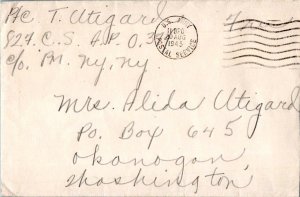 Pfc T. Utigard
827 C.S. A.P.O. 
c/o PM. Ny, Ny.
U.S. ARMY
AUG
1945
POSTAL SERVICE
Mrs. Alida Utigard
Po. Box 645
Okanogan,
Washington,